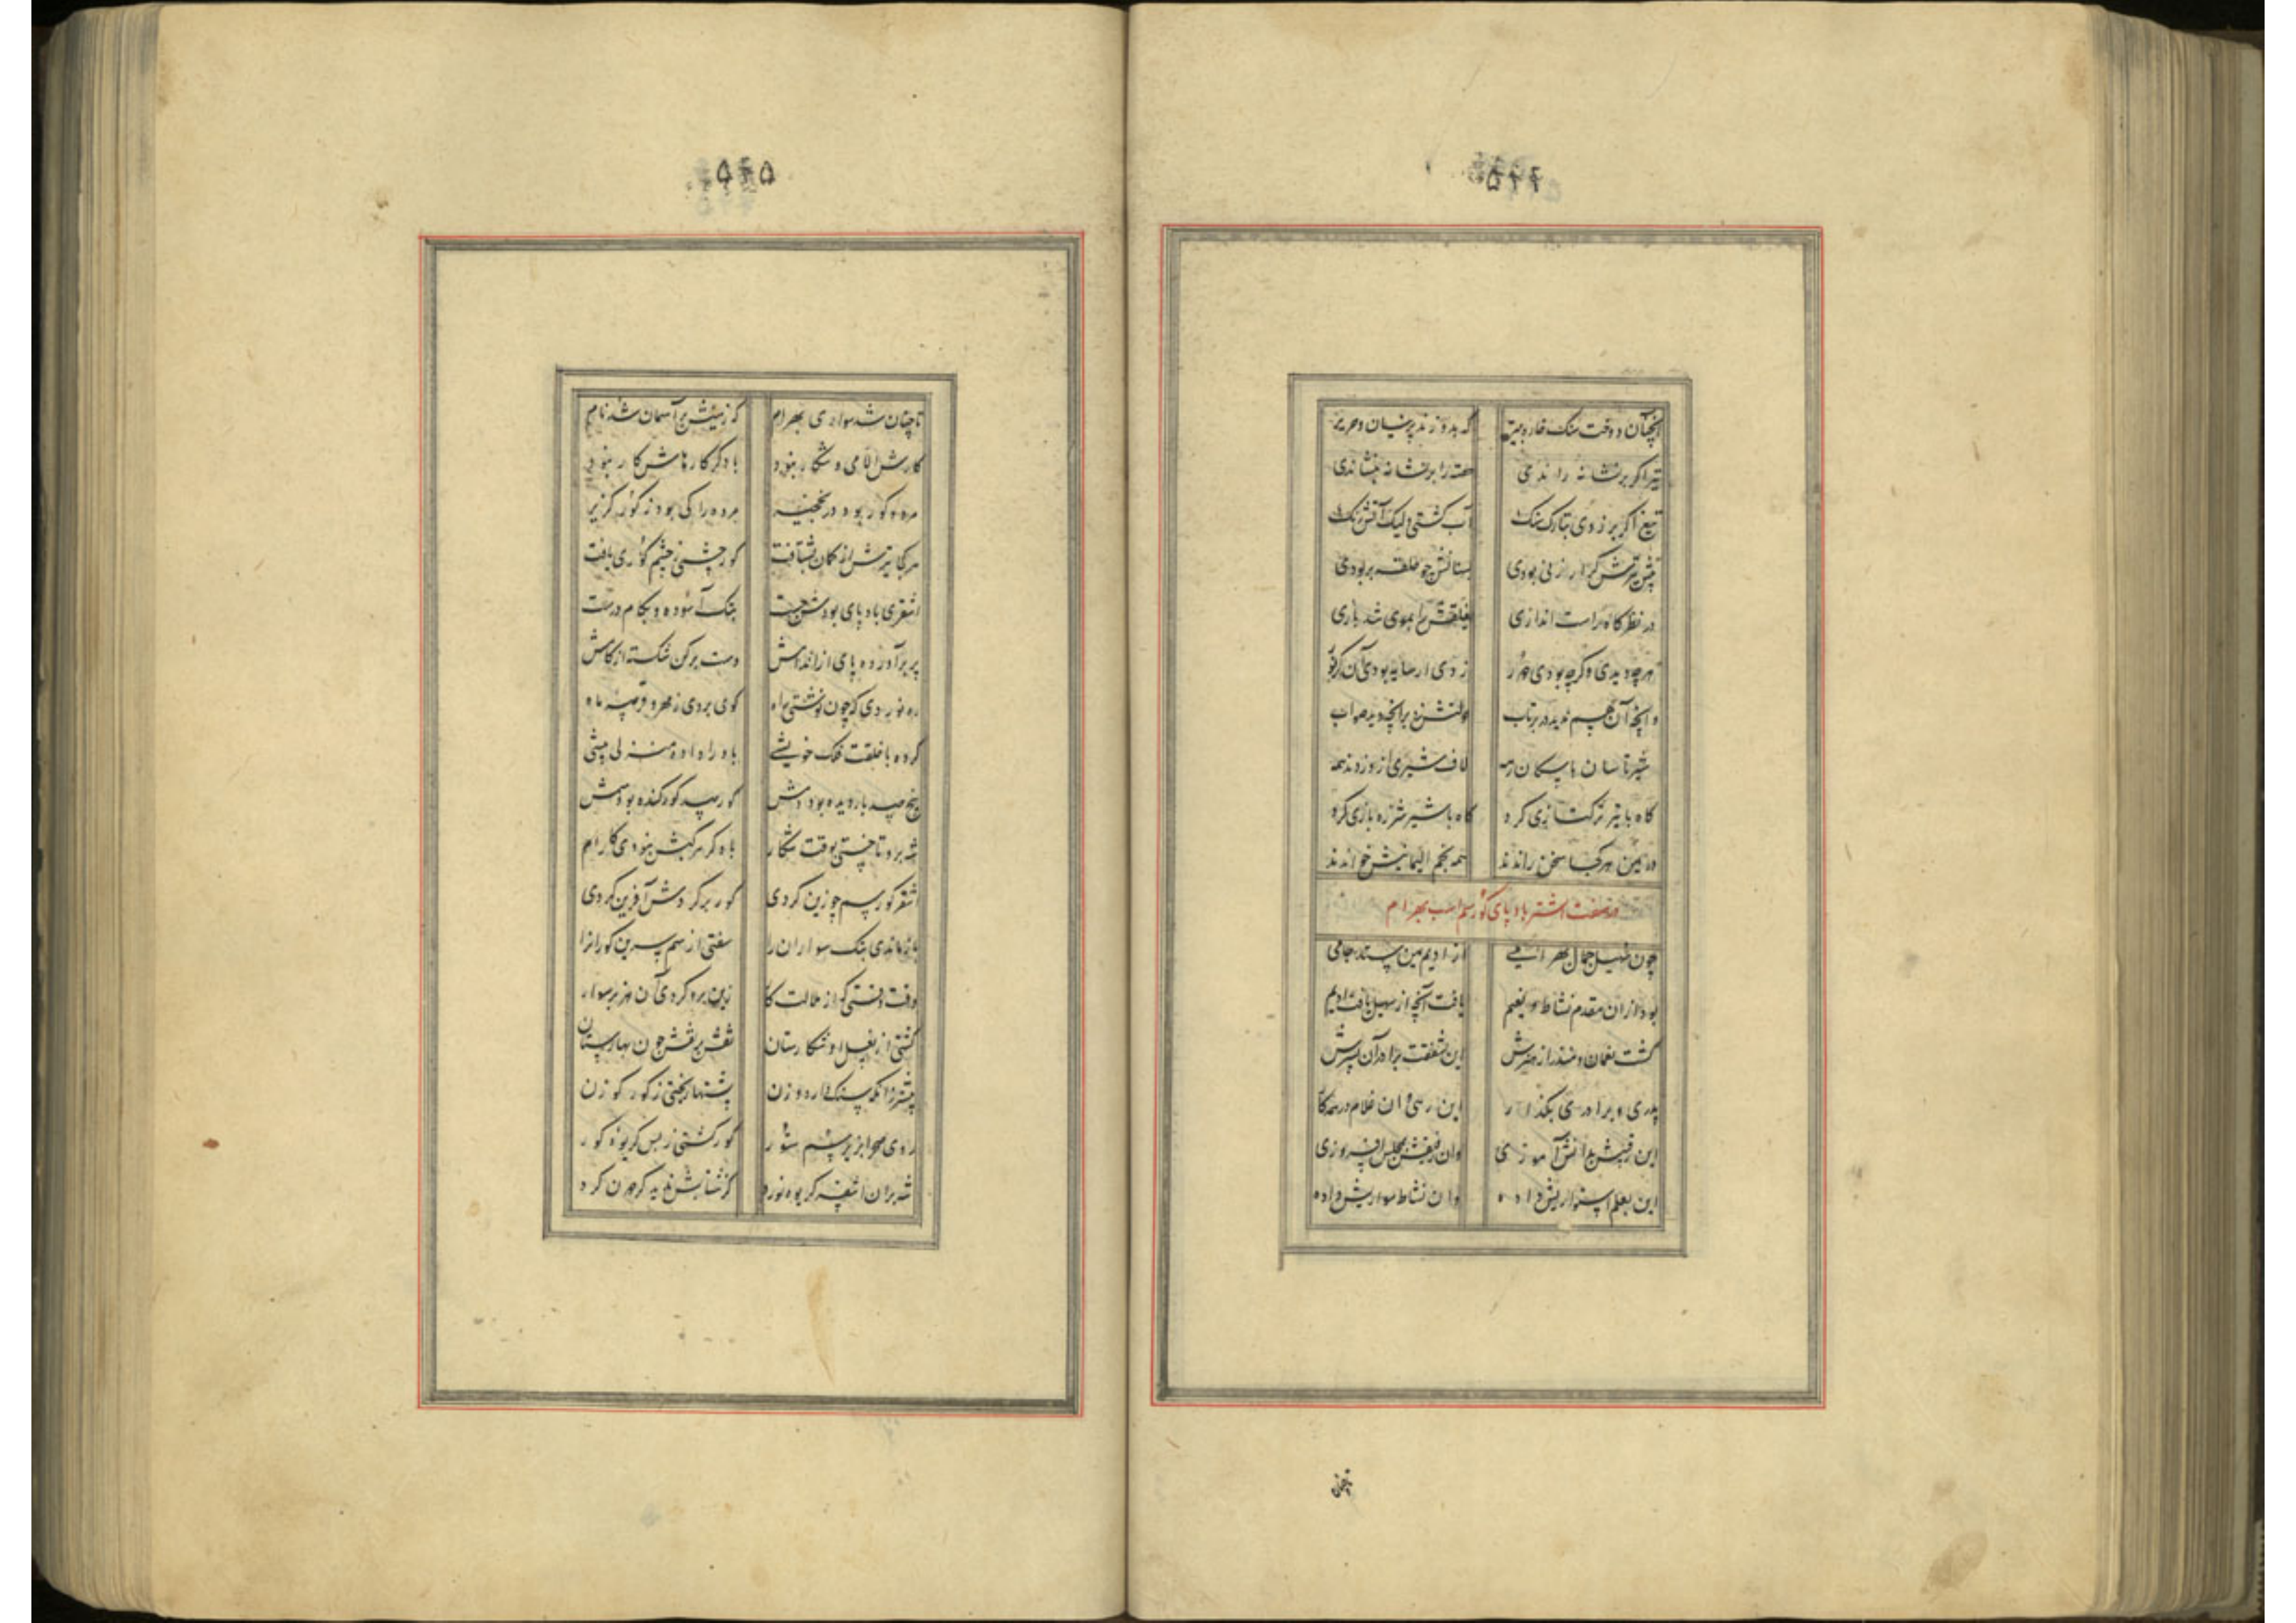 ۵۴۴
آنچنان دوخت سنک خاره به تیر که بدوزند پرنیان و حریر
تیر اکر بر نشانه راندی حقه را بر نشانه بنشاندی
تیغ اکر بر زدی بتارک سنک آب کشتی ولیک آتش رنک
پیش تیرش کر ارزنی بودی بسنانش چو حلقه بربودی
در نظرکاه راست اندازی بغلطش را بموی شد بازی
هرچه دیدی وکرچه بودی دور زدی ار سایه بودی آن کر نور
وانچه آن هم ندید در پرتاب دولتش زد برانچه دید صواب
شیرتاسان پاسبان رمه لاف شیری ازو زدند همه
کاه با ببر ترکتازی کرد کاه با شیر شرزه بازی کرد
در یمن هر کجا سخن راندند همه نجم الیمانیش خواندند
در صفت اشقر باد پای کور سم اسب بهرام
چون سهیل جمال بهرامی از ادیم یمن ستد جامی
بود ازان مقدم نشاط و نعیم یافت آنچ از سهیل یافت ادیم
کشت نعمان و منذر از هنرش این شفقت برادر آن پدرش
پدری و برادری بکذار این رهی وان غلام در همه کار
این رقیبش بدانش آموزی وان رفیقش بمجلس افروزی
این بعلم استواریش داده وان نشاط سواریش داده
تا چنان
۵۴۵
تا چنان شد سواری بهرام که ز زمینش بر آسمان شد نام
کارش الا می و شکار نبود با دکر کارهاش کار نبود
مرده کور بود در نخجیر مرده را کی بود ز کور کزیر
هر کجا تیرش از کمان بشتافت کور چشمی ز چشم کوری یافت
اشقری باد پای بودش چست بتک آسوده و بکام درست
پر بر آورده پای از اندامش دست بر کن شکسته از کامش
ره نوردی که چون نوشتی راه کوی بردی ز مهر و قرصه ماه
کرده با خلقت فلک خویشی باد را داده منزلی پیشی
پیچ صد بار دیده بود دمش کور صد کور کنده بود سمش
شه برو تاختی بوقت شکار با دکر مرکبش نبودی کار
اشقر کور سم چو زین کردی کور بر کردش آفرین کردی
باز ماندی بتک سواران را سفتی از سم سرین کوران را
وقت وقتی که از ملالت کار زین برو کردی آن هنر سوار
کشتی از نعل او شکارستان نقش بر نقش چون بهارستان
پیشتر زانکه سنک دارد وزن پشتها ریختی ز کور کوزن
روی صحرا بزیر سم ستور کور کشتی ز بس کریوه کور
شه بران اشقر کریوه نورد کز شتابش ندید کردون کرد